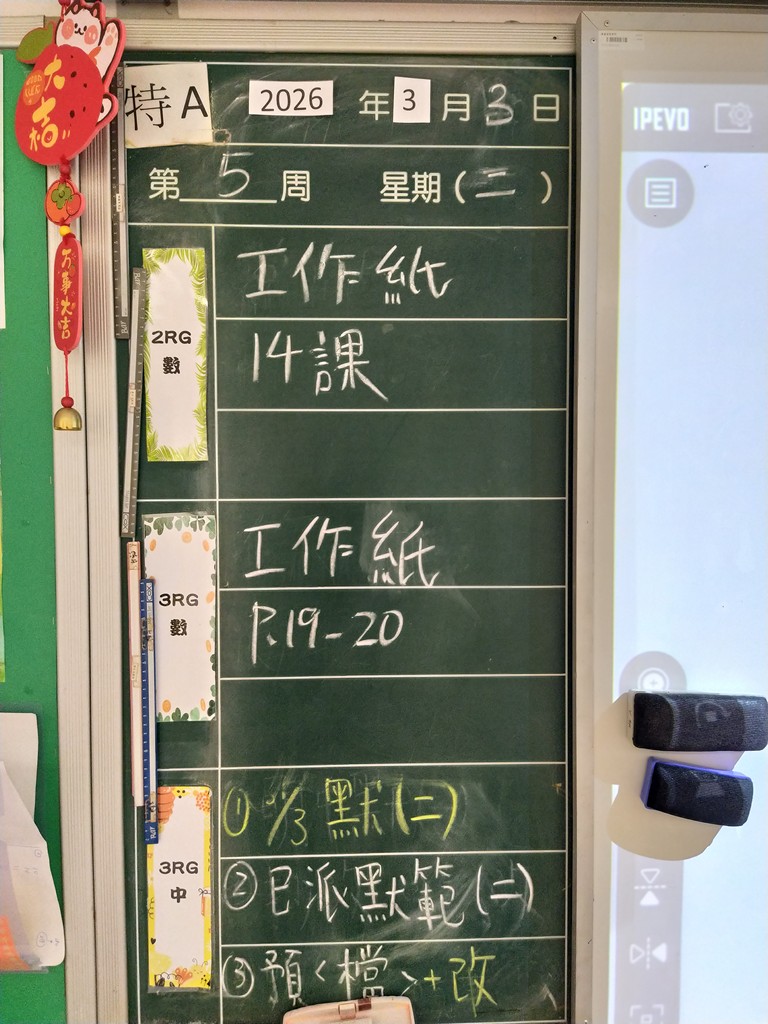 大
吉
桔
万事大吉
特A 2026 年 3 月 3 日
第 5 周 星期(二)
IPEVO
2RG
數
工作紙
14課
3RG
數
工作紙
P.19-20
3RG
中
① /3 默(二)
② 已派默範(二)
③ 預〈檔〉+改